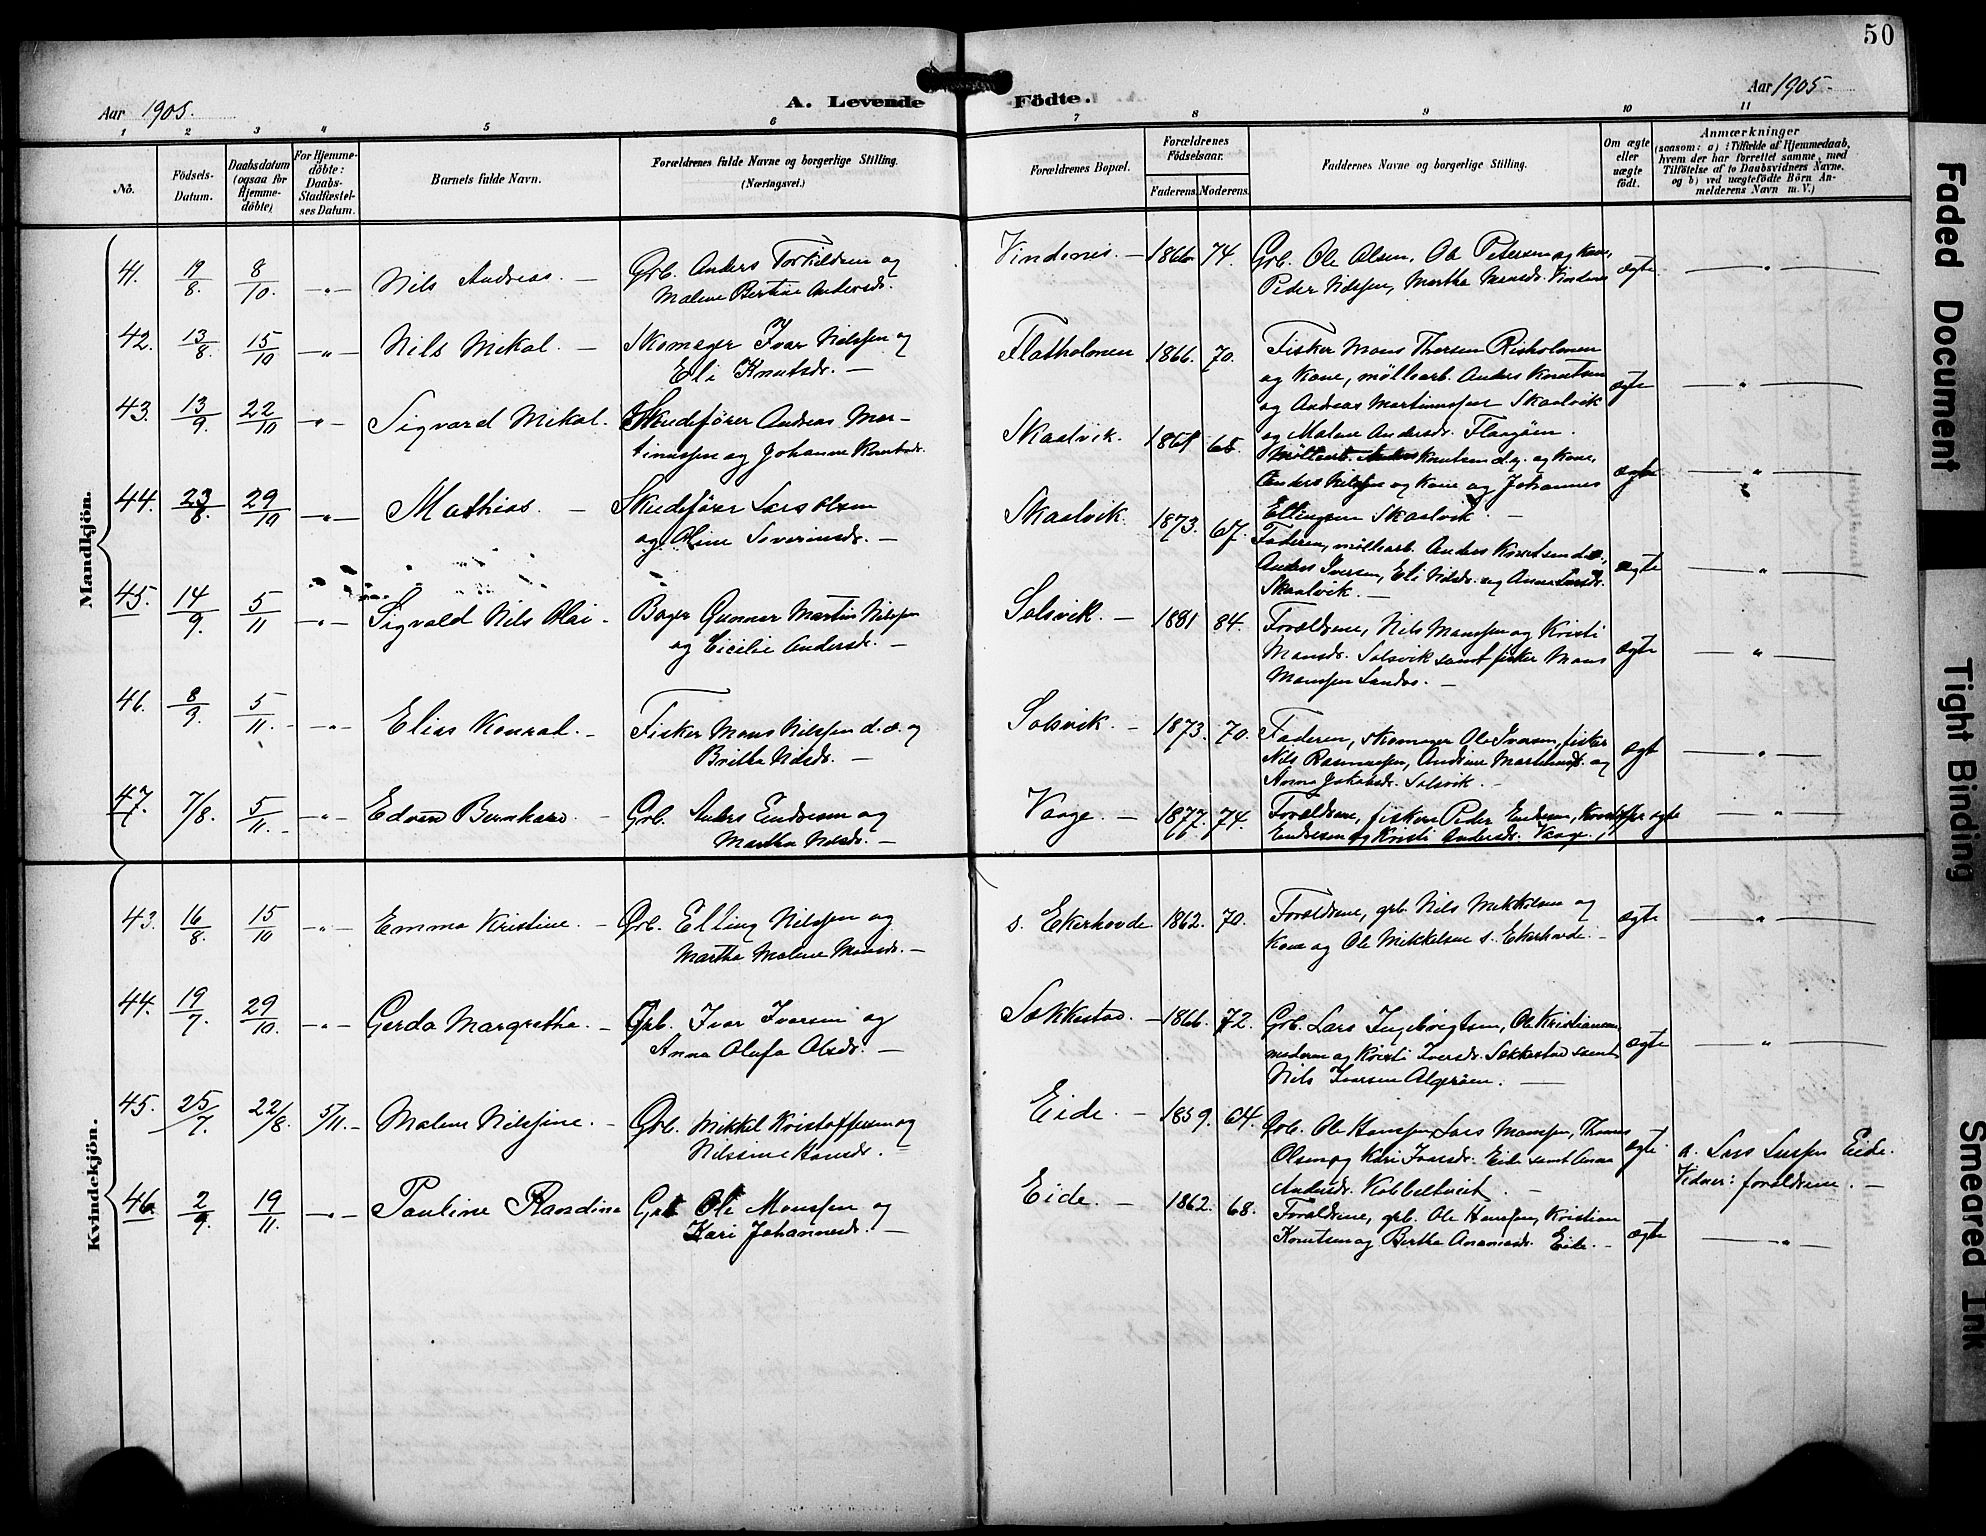 50
Aar 1905.
A. Levende
Födte.
Aar 1905.
1 2 3 4 5 6 7 8 9 10 11
No.
Födsels-
Datum.
Daabsdatum
(ogsaa for
Hjemme-
döbte)
For Hjemme-
döbte:
Daabs-
Stadfæstel-
ses Datum.
Barnets fulde Navn.
Forældrenes fulde Navne og borgerlige Stilling.
(Næringsvei.)
Forældrenes Bopæl.
Forældrenes
Födselsaar.
Faderens. Moderens.
Faddernes Navne og borgerlige Stilling.
Om ægte
eller
uægte
födt.
Anmærkninger
(saasom: a) i Tilfælde af Hjemmedaab,
hvem der har forrettet samme, med
Tilföielse af to Daabsvidners Navne,
og b) ved uægtefödte Börn An-
melderens Navn m. V.)
Mandkjön.
41. 19/8. 8/10. -„- Nils Andreas. - Grb. Anders Torkildsen og
Malene Bertine Andersdr.
Vindenes. - 1866. 74. Grb. Ole Olsen, Ole Petersen og Kone,
Peder Nilssen, Martha Monsdr. Vindenes
ægte „
42. 13/8. 15/10 -„- Nils Mikal. - Skomager Ivar Nilssen og
Eli Knutsdr. -
Flatholmen 1866. 70. Fisker Mons Thorsen Risholmen
og Kone, møllearb. Anders Knutsen
og Andreas Martinussen Skaalvik
og Malene Andersdr. Flaagøen.
ægte „
43. 13/9. 22/10 -„- Sigvard Mikal. Skudefører Andreas Mar-
tinussen og Johanne Knutsdr.
Skaalvik. 65. Møllearb. Anders Knutsen d.y. og Kone,
Anders Nilssen og Kone og Johannes
Ellingsen Skaalvik. -
ægte „
44. 23/8. 29/10 -„- Mathias. - Skudefører Lars Olsen
og Oline Severinsdr. -
Skaalvik. 1873. 67. Faderen, møllearb. Anders Knutsen d.æ.,
Anders Iversen, Eli Nilsdr. og Anna Larsdr.
Skaalvik. -
ægte „
45. 14/9. 5/11 -„- Sigvald Nils Olai - Bager Gunnar Martin Nilssen
og Cicilie Andersdr. -
Solsvik. - 1881 84. Forældrene, Nils Monssen og Kristi
Monsdr. Solsvik samt fisker Mons
Monssen Landro. -
ægte „
46. 8/9. 5/11. - -„- Elias Konrad. - Fisker Mons Nilssen d.æ. og
Britha Nilsdr. -
Solsvik. - 1873. 70. Faderen, skomager Ole Iversen, fisker
Nils Rasmussen, Andrine Martinusdr. og
Anna Jakobsdr. Solsvik. -
ægt „
47. 7/8. 5/11. - -„- Edvin Bernhard. - Grb. Anders Endresen og
Martha Nilsdr. -
Vaage. - 1877. 74. Forældrene, fiskere Peder Endresen, Kristoffer
Endresen og Kristi Andersdr. Vaage.
ægte „
Kvindekjön.
43. 16/8. 15/10 -„- Emma Kristine. - Grb. Elling Nilssen og
Martha Malene Monsdr. -
s. Ekerhovde 1862. 70. Forældrene, grb. Nils Mikkelsen og
Kone og Ole Mikkelsen s. Ekerhovde. -
ægte „
44. 19/7. 29/10. -„- Gerda Margretha. - Grb. Ivar Ivarsen og
Anna Olufa Olsdr. -
Sækkestad. - 1866. 72. Grb. Lars Ingebrigtsen, Ole Kristiansen,
moderen og Kristi Iversdr. Sækkestad samt
Nils Ivarsen Algerøen. -
ægte „
45. 25/7. 22/8. 5/11. - Malene Nilsine. - Grb. Mikkel Kristoffersen og
Nilsine Hansdr. -
Eide. - 1859. 64. Grb. Ole Hanssen, Lars Monssen, Thomas
Olsen og Kari Ivarsdr. Eide samt Anna
Andersdr. Kobbeltveit. -
ægte a. Lars Larssen Eide.
Vidner: forældrene. -
46. 2/9. 19/11. -„- Pauline Randine Grb Ole Monssen og
Kari Johannesdr. -
Eide. - 1862. 68. Forældrene, grb. Ole Hanssen, Kristian
Knutsen og Bertha Ananiasdr. Eide. -
ægte „
Faded Document
Tight Binding
Smeared Ink